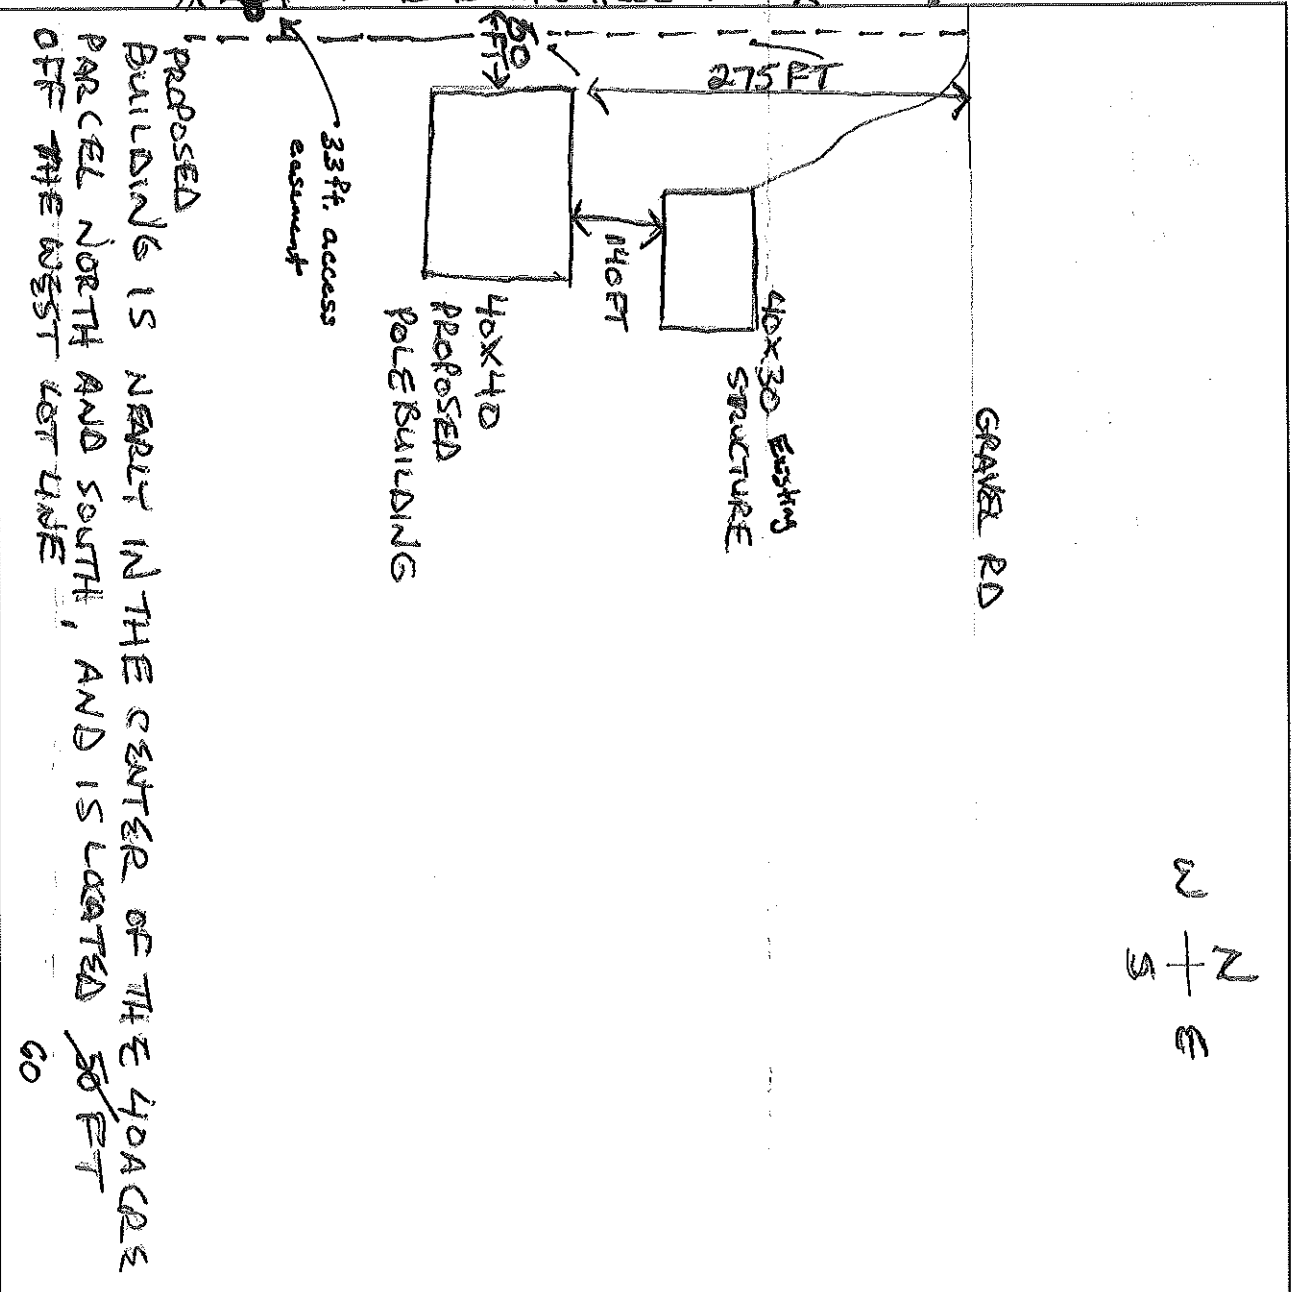 N
W E
S
GRAVEL RD
275 FT
40X30 Existing
STRUCTURE
140FT
50
FT
40X40
PROPOSED
POLEBUILDING
33ft. access
easement
PROPOSED
BUILDING IS NEARLY IN THE CENTER OF THE 40ACRE
PARCEL NORTH AND SOUTH, AND IS LOCATED 50 FT
60
OFF THE WEST LOT LINE